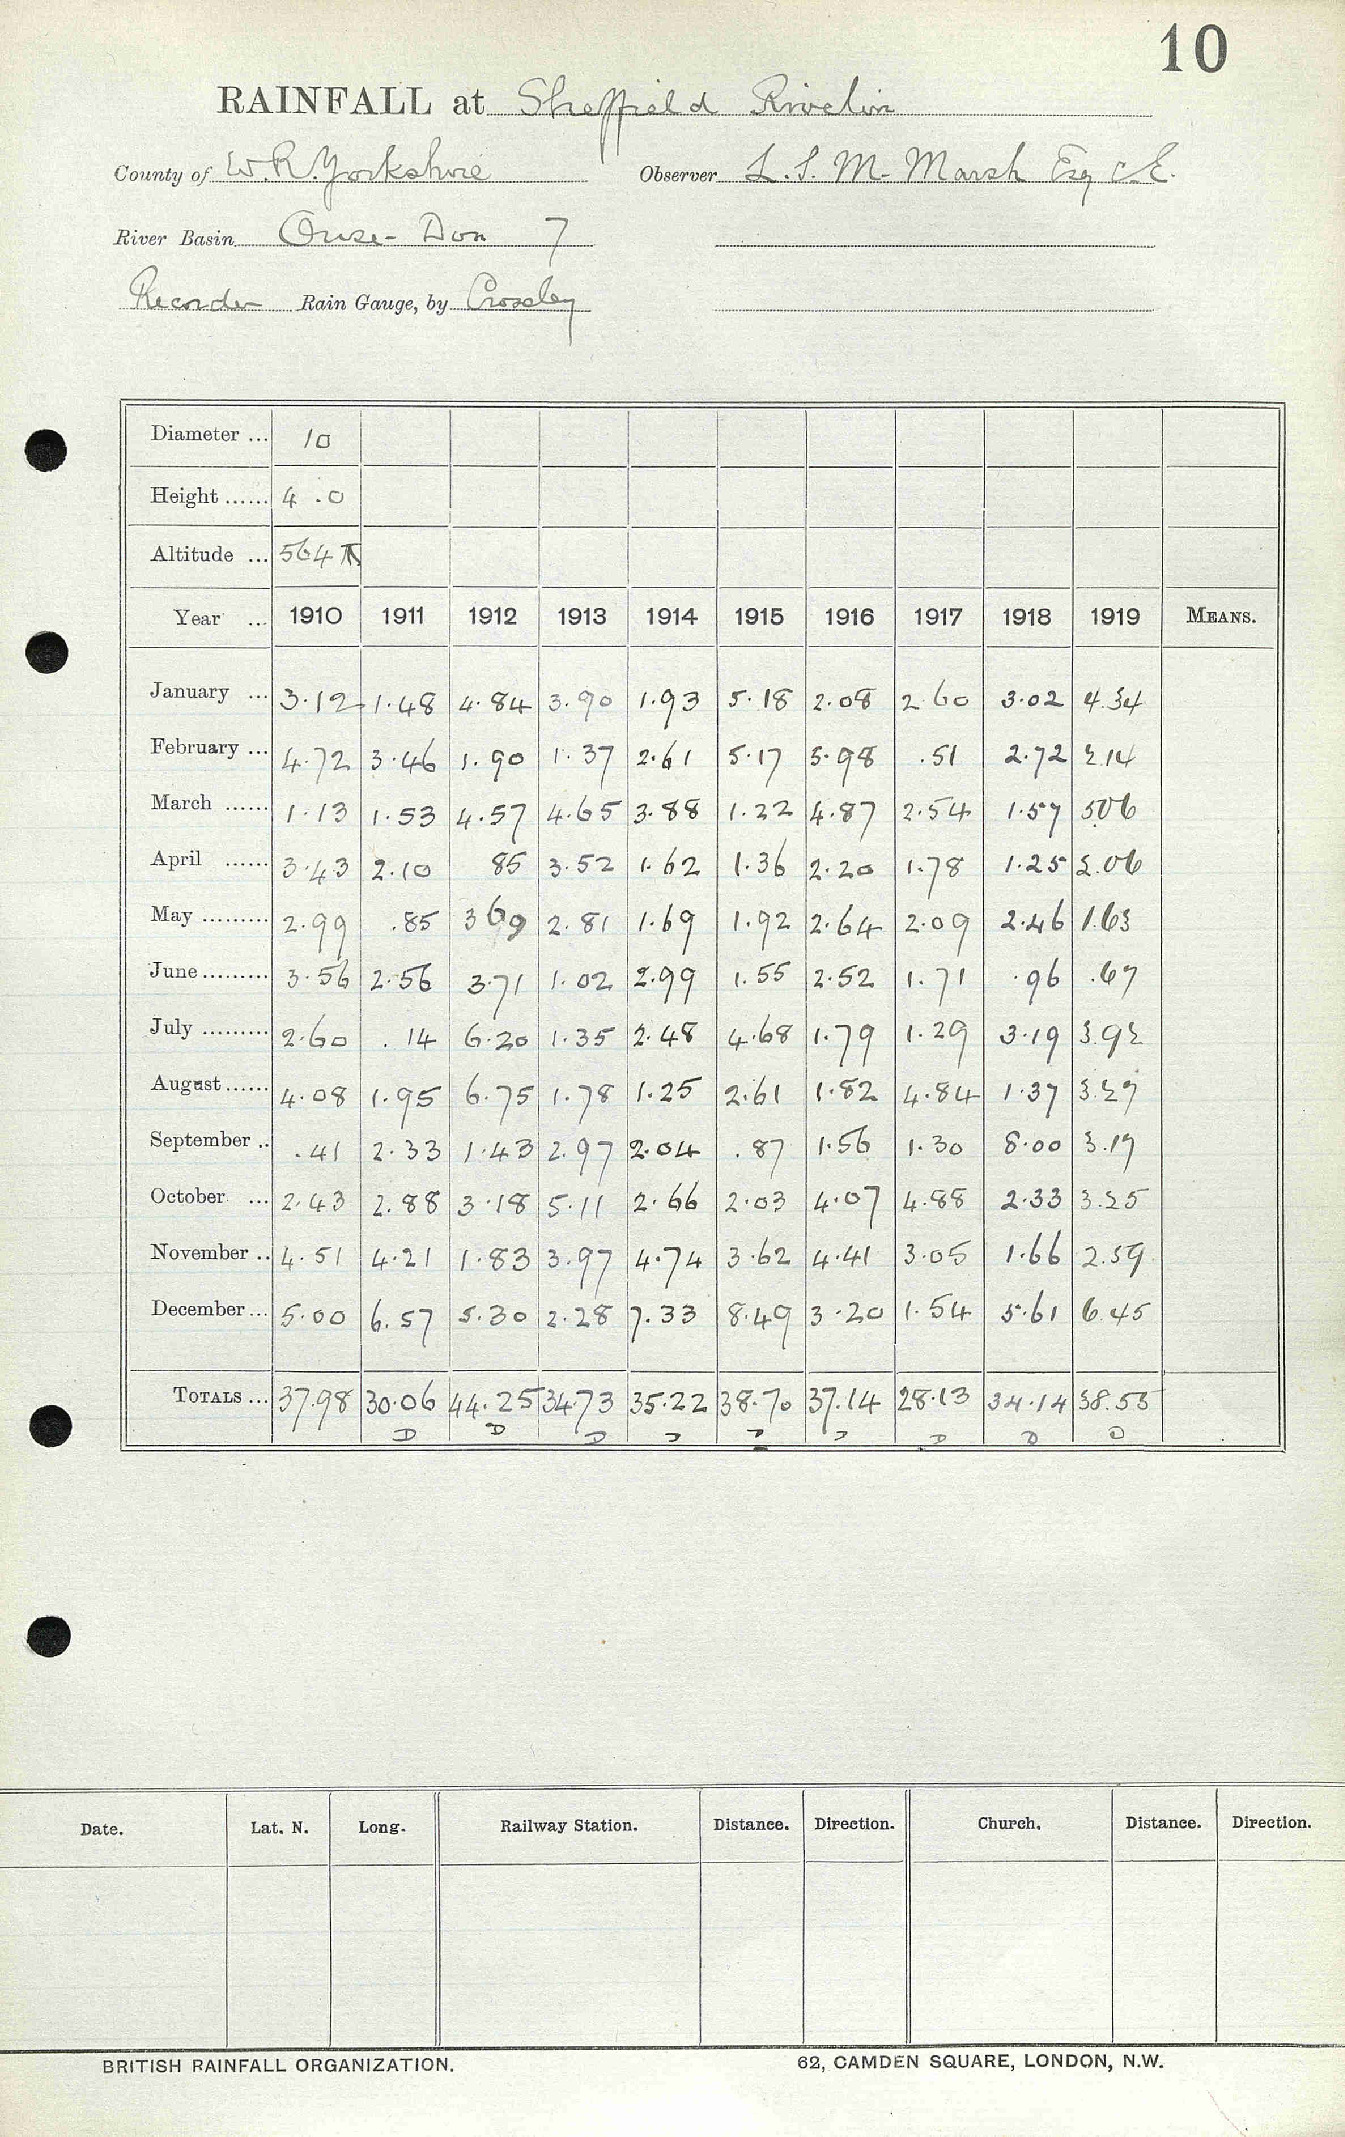 10
RAINFALL at Sheffield Rivelin
County of W.R. Yorkshire Observer L. S. M. Marsh Esq C.E.
River Basin Ouse - Don 7
Recorder Rain Gauge, by Crossley
Diameter ... 10
Height ...... 4 . 0
Altitude ... 564
Year ... 1910 1911 1912 1913 1914 1915 1916 1917 1918 1919 MEANS.
January ... 3.12 1.48 4.84 3.90 1.93 5.18 2.08 2.60 3.02 4.34
February ... 4.72 3.46 1.90 1.37 2.61 5.17 5.98 .51 2.72 2.14
March ...... 1.13 1.53 4.57 4.65 3.88 1.22 4.87 2.54 1.57 5.06
April ...... 3.43 2.10 85 3.52 1.62 1.36 2.20 1.78 1.25 2.06
May ......... 2.99 .85 3 69 2.81 1.69 1.92 2.64 2.09 2.46 1.63
June ......... 3.56 2.56 3.71 1.02 2.99 1.55 2.52 1.71 .96 .67
July ......... 2.60 .14 6.20 1.35 2.48 4.68 1.79 1.29 3.19 3.92
August ...... 4.08 1.95 6.75 1.78 1.25 2.61 1.82 4.84 1.37 3.27
September .. .41 2.33 1.43 2.97 2.04 .87 1.56 1.30 8.00 3.17
October ... 2.43 2.88 3.18 5.11 2.66 2.03 4.07 4.88 2.33 3.25
November .. 4.51 4.21 1.83 3.97 4.74 3.62 4.41 3.05 1.66 2.59
December ... 5.00 6.57 5.30 2.28 7.33 8.49 3.20 1.54 5.61 6.45
TOTALS ... 37.98 30.06 44.25 34.73 35.22 38.70 37.14 28.13 34.14 38.55
D D D D D D D D D
Date. Lat. N. Long. Railway Station. Distance. Direction. Church. Distance. Direction.
BRITISH RAINFALL ORGANIZATION. 62, CAMDEN SQUARE, LONDON, N.W.